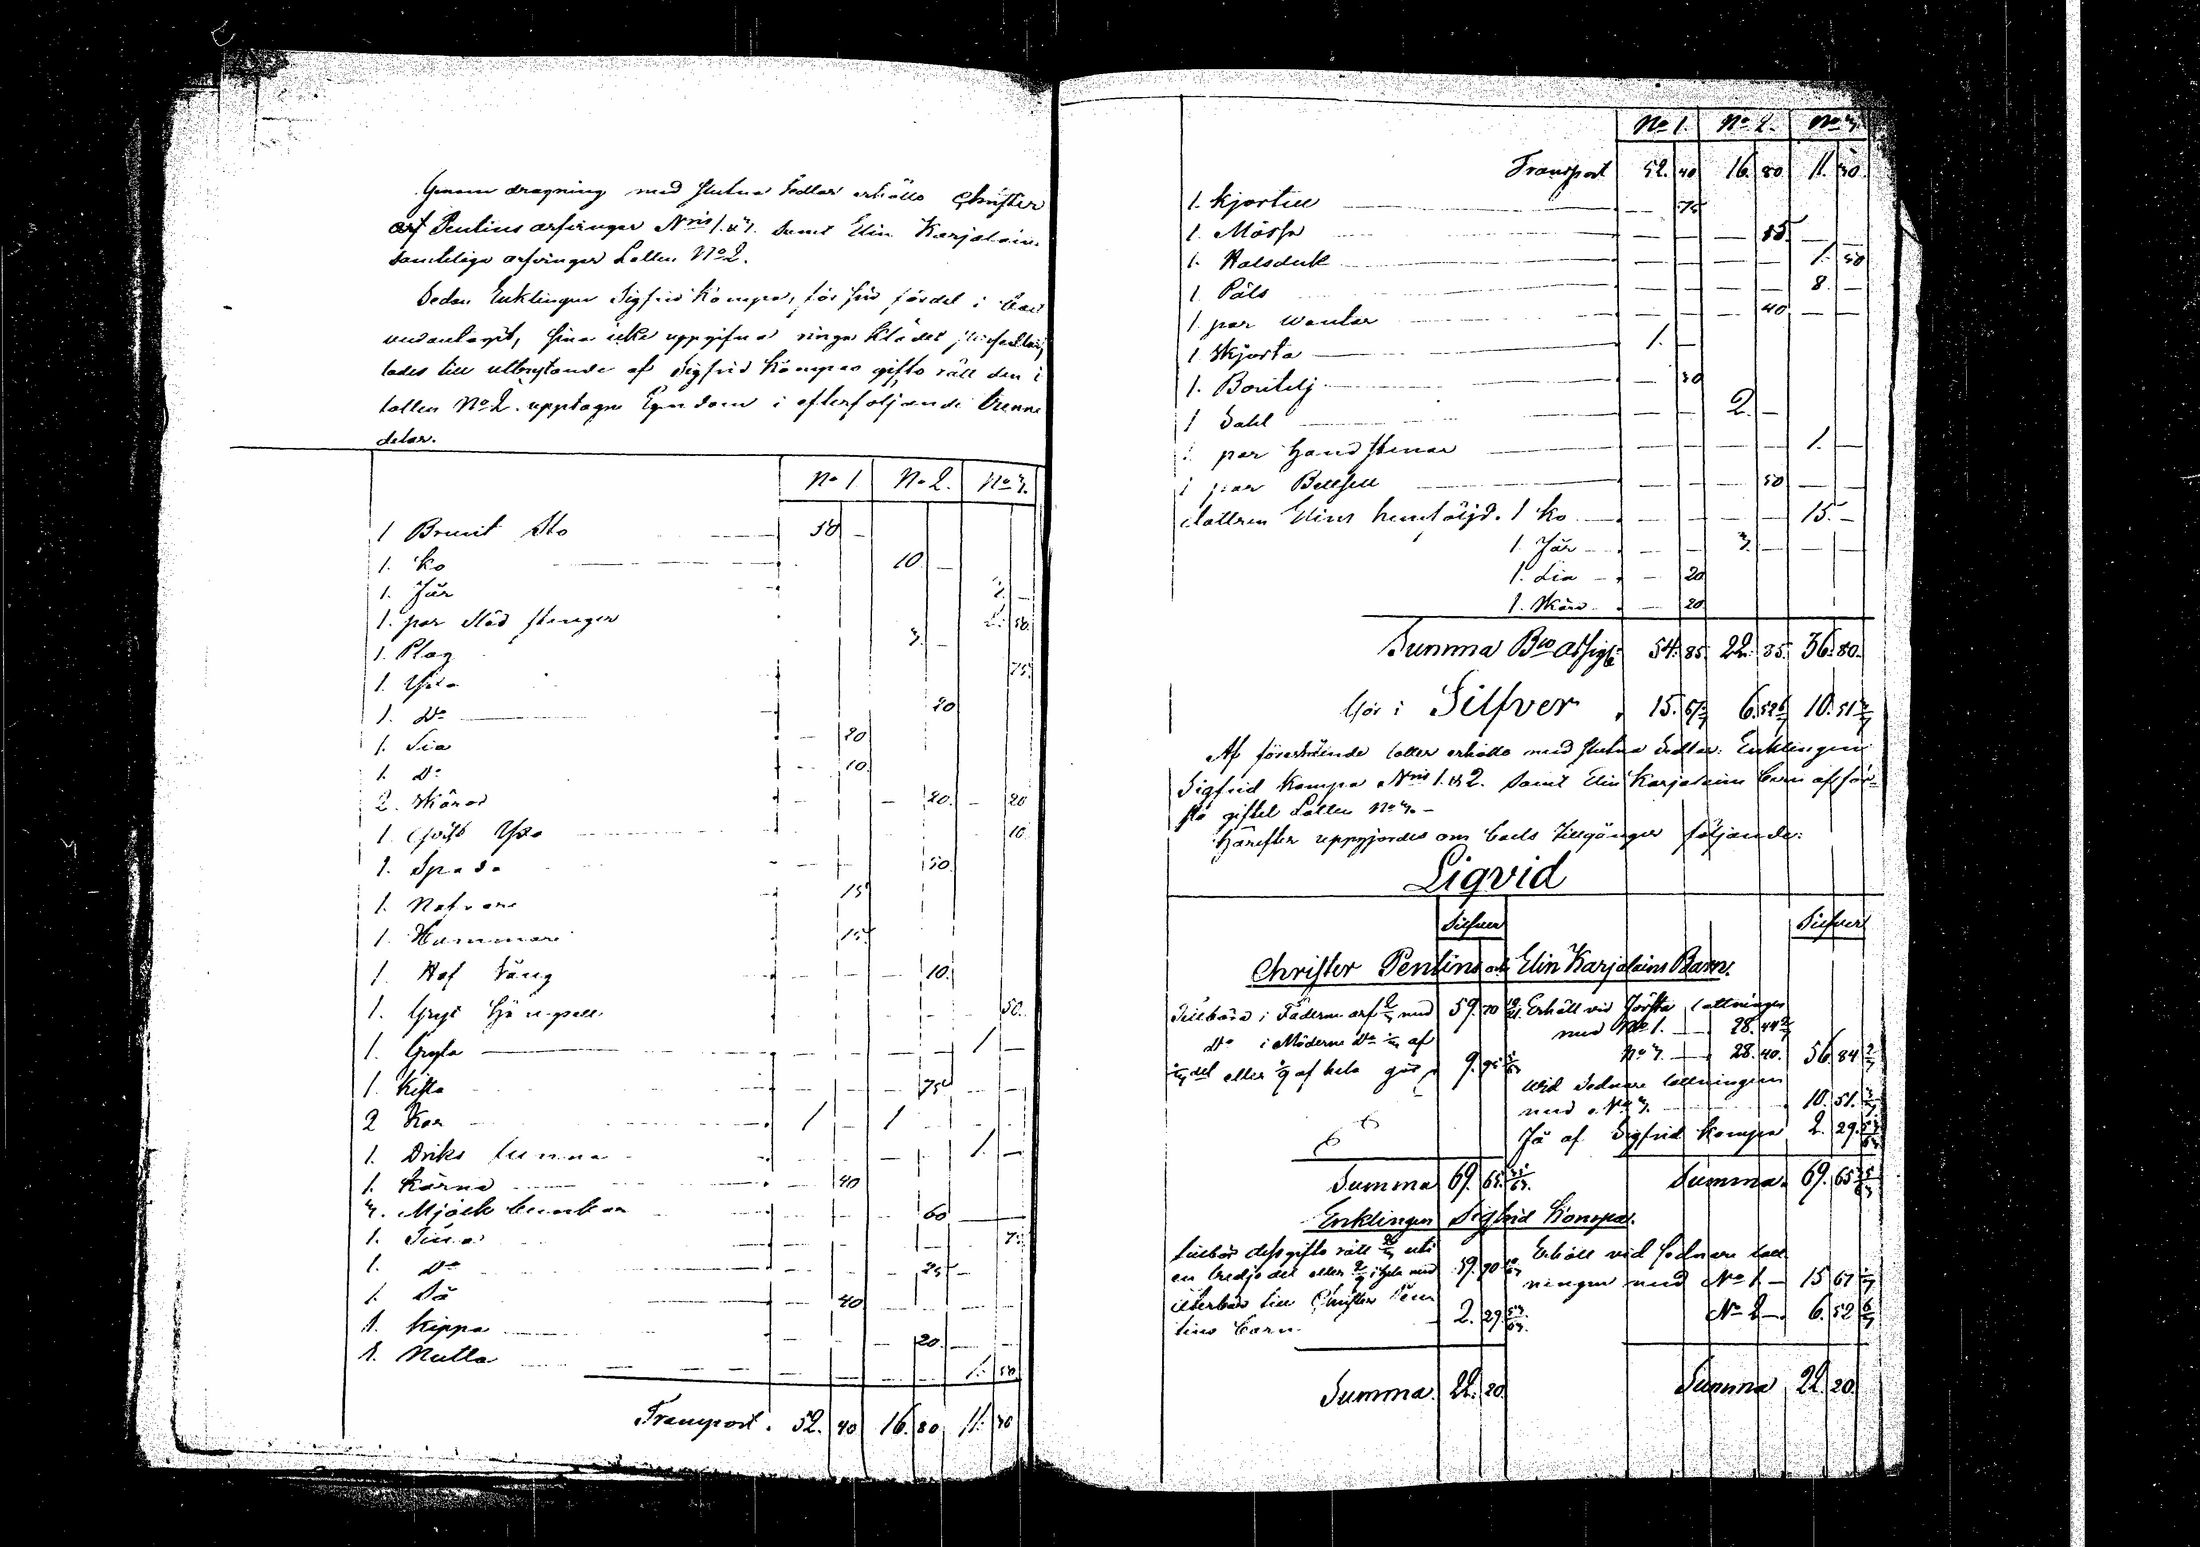 Genom dragning med slutna Sedlar erhöllo Christer
arf Pentins arfvingar Nris 1. & 3. samt Elin Karjalain
samteliga arfvingar Lotten No 2.
Sedan Enklingen Sigfrid Kompa, för sin fördel i boet
undantagit, sina icke uppgifna ringa kläder
lades till utbrytande af Sigfrid Kompas gifto rätt den i
lotten No 2. upptagne Egendom i efterföljande trenne
delar.
No 1. No 2. No 3.
1 Brunt Sto 50 -
1. Ko 10. -
1. Får
1. par Släd stänger 50.
1. Plog 3. -
1. Yxa 75.
1. Do 20
1. Lia 20
1. Do 10.
2. Skäror 20. 20
1. Yxa 10.
1. Spada 50.
1. Nafvare 15
1. Hammare 15
1. Hof tång 10.
1. Gryt 50.
1. Gryta 1 -
1. Kista 75
2 Kar 1 - 1 -
1. Driks tunna 1. -
1. Kärna 40
3. Mjölk bunkar 60
1. Tina 75
1. Do 25
1. Så 40
1. Kippa 20.
1. Nulla 1. 50
Transport. 52. 40 16. 80 11. 30
No 1. No 2. No 3.
Transport 52. 40 16. 80 11. 30.
1. Kjortill 75
1. Mössa 85.
1. Halsduk 1. 50
1. Päls 8. -
1. par Wantar 40
1 Skjorta 1. -
1. Boutelj 30
1 Sahl 2. -
1. par Handstenar 1. -
1 par Bettsell 50
dottren Elins hemföljd. 1 Ko 15. -
1. Får 3. -
1. Lia 20
1. Skära 20.
Summa Bco Assig: 54. 85. 22. 85. 36. 80.
Gör i Silfver 15. 67 1/7 6. 52 6/7 10. 51 3/7
Af förestående lotter erhöllo med slutna Sedlar: Enklingen
Sigfrid Kompa Nris 1. & 2. samt Elin Karjalains barn af för-
sta giftet Lotten No 3. -
Härefter uppgjordes om boets tillgångar följande:
Liqvid
Silfver Silfver
Christer Pentins och Elin Karjalains Barn.
Tillkom i Fäderne arf 2/3 med 59. 70 Erhållt vid första lottningen
med No 1. 28. 44 2/7
Do i Möderne Do 1/3 af No 3. 28. 40. 56. 84 2/7
1/3 del eller 1/9 af hela 9. 95 Wid Sednare lottningen
med No 3. 10. 51. 3/7
Få af Sigfrid Kompa 2. 29.
Summa 69. 65. Summa. 69. 65
Enklingen Sigfrid Kompa.
tillkom dess gifto rätt 2/3 uti Erhållt vid sednare lott
en tredje del eller 2/9 i hela med 19. 90 ningen med No 1. 15 67 1/7
återbär till Christer Pen
tins barn. 2. 29 No 2. 6. 52 6/7
Summa. 22. 20. Summa 22. 20.